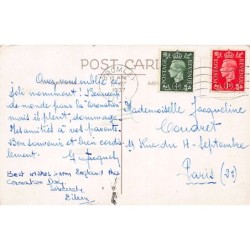 POST CARD
Avez-vous oublié ce
joli monument ! Beaucoup
de monde pour la "Coronation"
mais il pleut, dommage.
Mes amitiés à vos parents.
Bon souvenir et bien cordialement
Best wishes from England this
Coronation Day.
Eileen
POSTAGE
REVENUE
Mademoiselle Jacqueline
Coudret
Rue du 4 Septembre
Paris (2e)